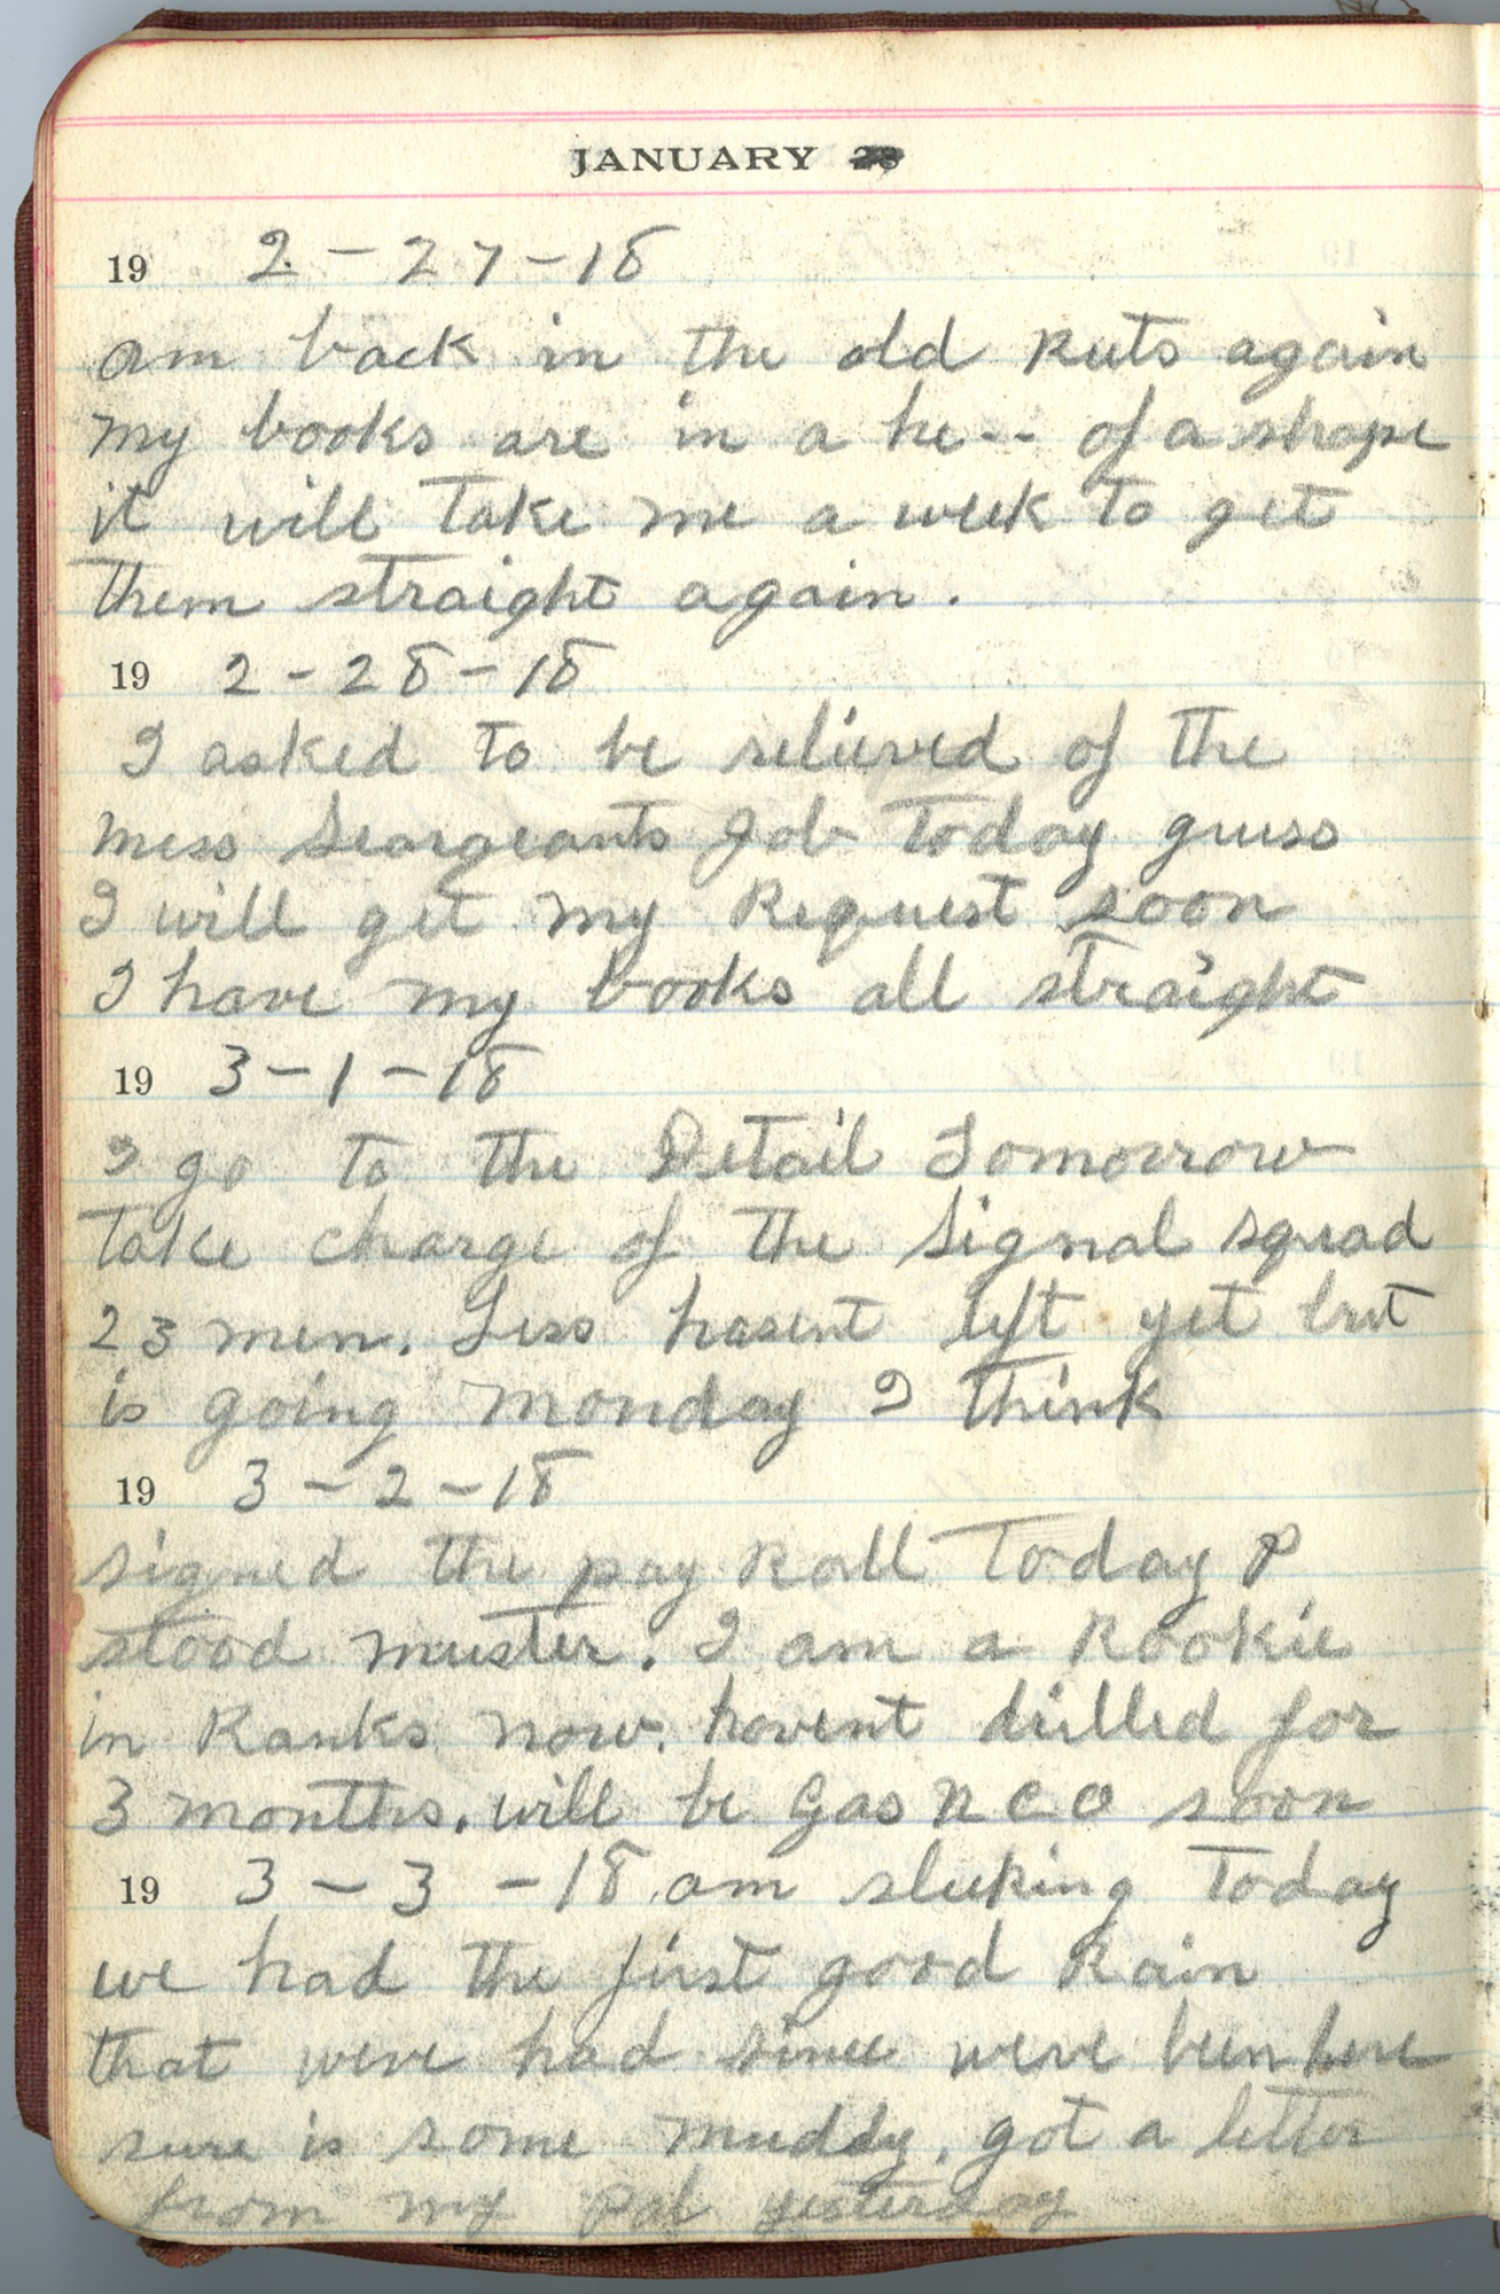 JANUARY 28
19 2-27-18
am back in the old Ruts again
my books are in a he-- of a shape
it will take me a week to get
them straight again.
19 2-28-18
I asked to be relieved of the
mess Seargeants Job today guess
I will get my Request soon
I have my books all straight
19 3-1-18
I go to the Detail Tomorrow
take charge of the Signal squad
23 men. Less hasent left yet but
is going monday I think
19 3-2-18
signed the pay Roll today &
stood muster. I am a Rookie
in Ranks now. havent drilled for
3 months. will be Gas N C O soon
19 3-3-18 am sleeking today
we had the first good Rain
that weve had since weve been here
sure is some muddy, got a letter
from my Pal yesterday